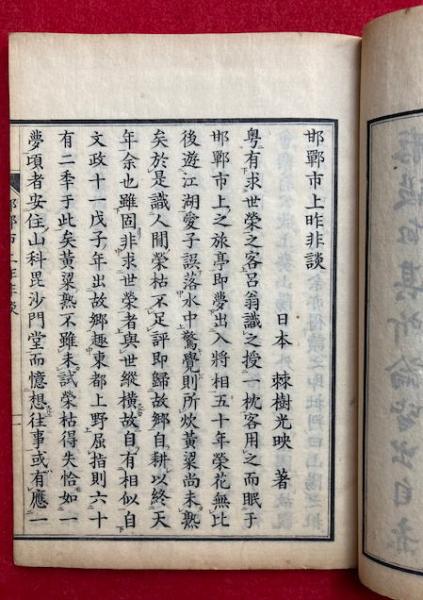 邯鄲市上昨非談
日本 棘樹光映 著
粤有求世榮之客呂翁識之授一枕客用之而眠于
邯鄲市上之旅亭即夢出入將相五十年榮花無比
後遊江湖愛子誤落水中驚覺則所炊黃粱尚未熟
矣於是識人間榮枯不足評即歸故鄉自耕以終天
年余也雖固非求世榮者與世縱橫故自有相似自
文政十一戊子年出故鄉趣東都上野屈指則六十
有二秊于此矣黃粱熟不雖未試榮枯得失恰如一
夢頃者安住山科毘沙門堂而憶想往事或有應一
邯鄲市上昨非談
一